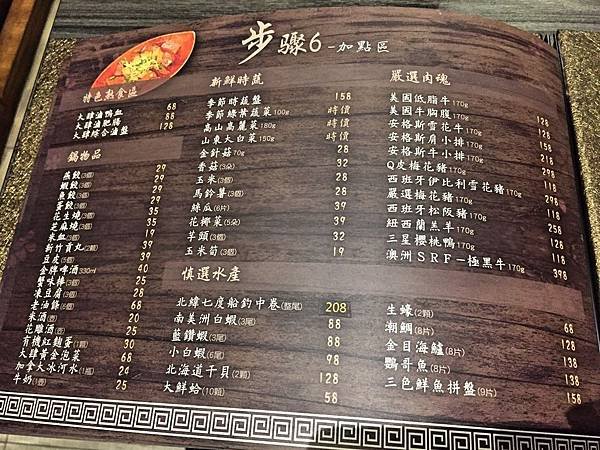 步驟6-加點區
特色熟食區
大肆滷鴨血 68
大肆滷肥腸 88
大肆綜合滷盤 128
鍋物品
燕餃(3個) 29
蝦餃(3個) 29
魚餃(3個) 29
蛋餃(3個) 29
花生燒(3個) 35
芝麻燒(3個) 35
米血(3個) 29
新竹貢丸(2顆) 39
豆皮(5個) 39
金牌啤酒330ml 40
蟹味棒(3個) 25
凍豆腐(3個) 28
老油條(6個) 68
米酒(壺) 20
花雕酒(壺) 20
有機紅麴蛋(1顆) 30
大肆黃金泡菜 68
加拿大冰河水(1瓶) 24
牛奶(1壺) 25
新鮮時蔬
季節時蔬盤 158
季節綠葉蔬菜100g 時價
高山高麗菜180g 時價
山東大白菜150g 時價
金針菇70g 28
香菇(3朵) 32
玉米(3個) 28
馬鈴薯(3個) 28
絲瓜(6片) 39
花椰菜(5朵) 39
芋頭(3個) 32
玉米筍(3個) 19
嚴選肉魂
美國低脂牛170g 128
美國牛胸腹170g
安格斯雪花牛170g
安格斯肩小排170g
安格斯牛小排170g
Q皮梅花豬170g
西班牙伊比利雪花豬170g
嚴選梅花豬170g
西班牙松阪豬170g
紐西蘭羔羊170g
三星櫻桃鴨170g
澳洲SRF-極黑牛170g 398
慎選水產
北緯七度船釣中卷(整尾) 208
南美洲白蝦(3尾) 88
藍鑽蝦(3尾) 88
小白蝦(6尾) 98
北海道干貝(2顆) 128
大鮮蛤(10顆) 58
生蠔(2顆) 68
潮鯛(8片) 128
金目海鱸(8片) 138
鸚哥魚(8片) 138
三色鮮魚拼盤(9片) 158